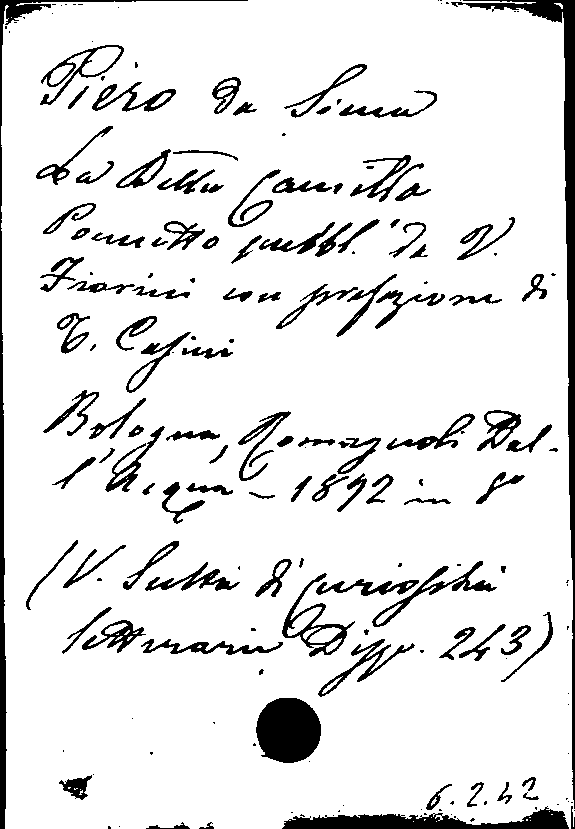 Piero da Siena
La Bella Camilla
Poemetto pubbl. da V.
Fiorini con prefazione di
T. Casini
Bologna, Romagnoli Dal-
l'Acqua - 1892 in 8°
(V. Scelta di curiosità
letterarie Disp. 243)
6.2.42